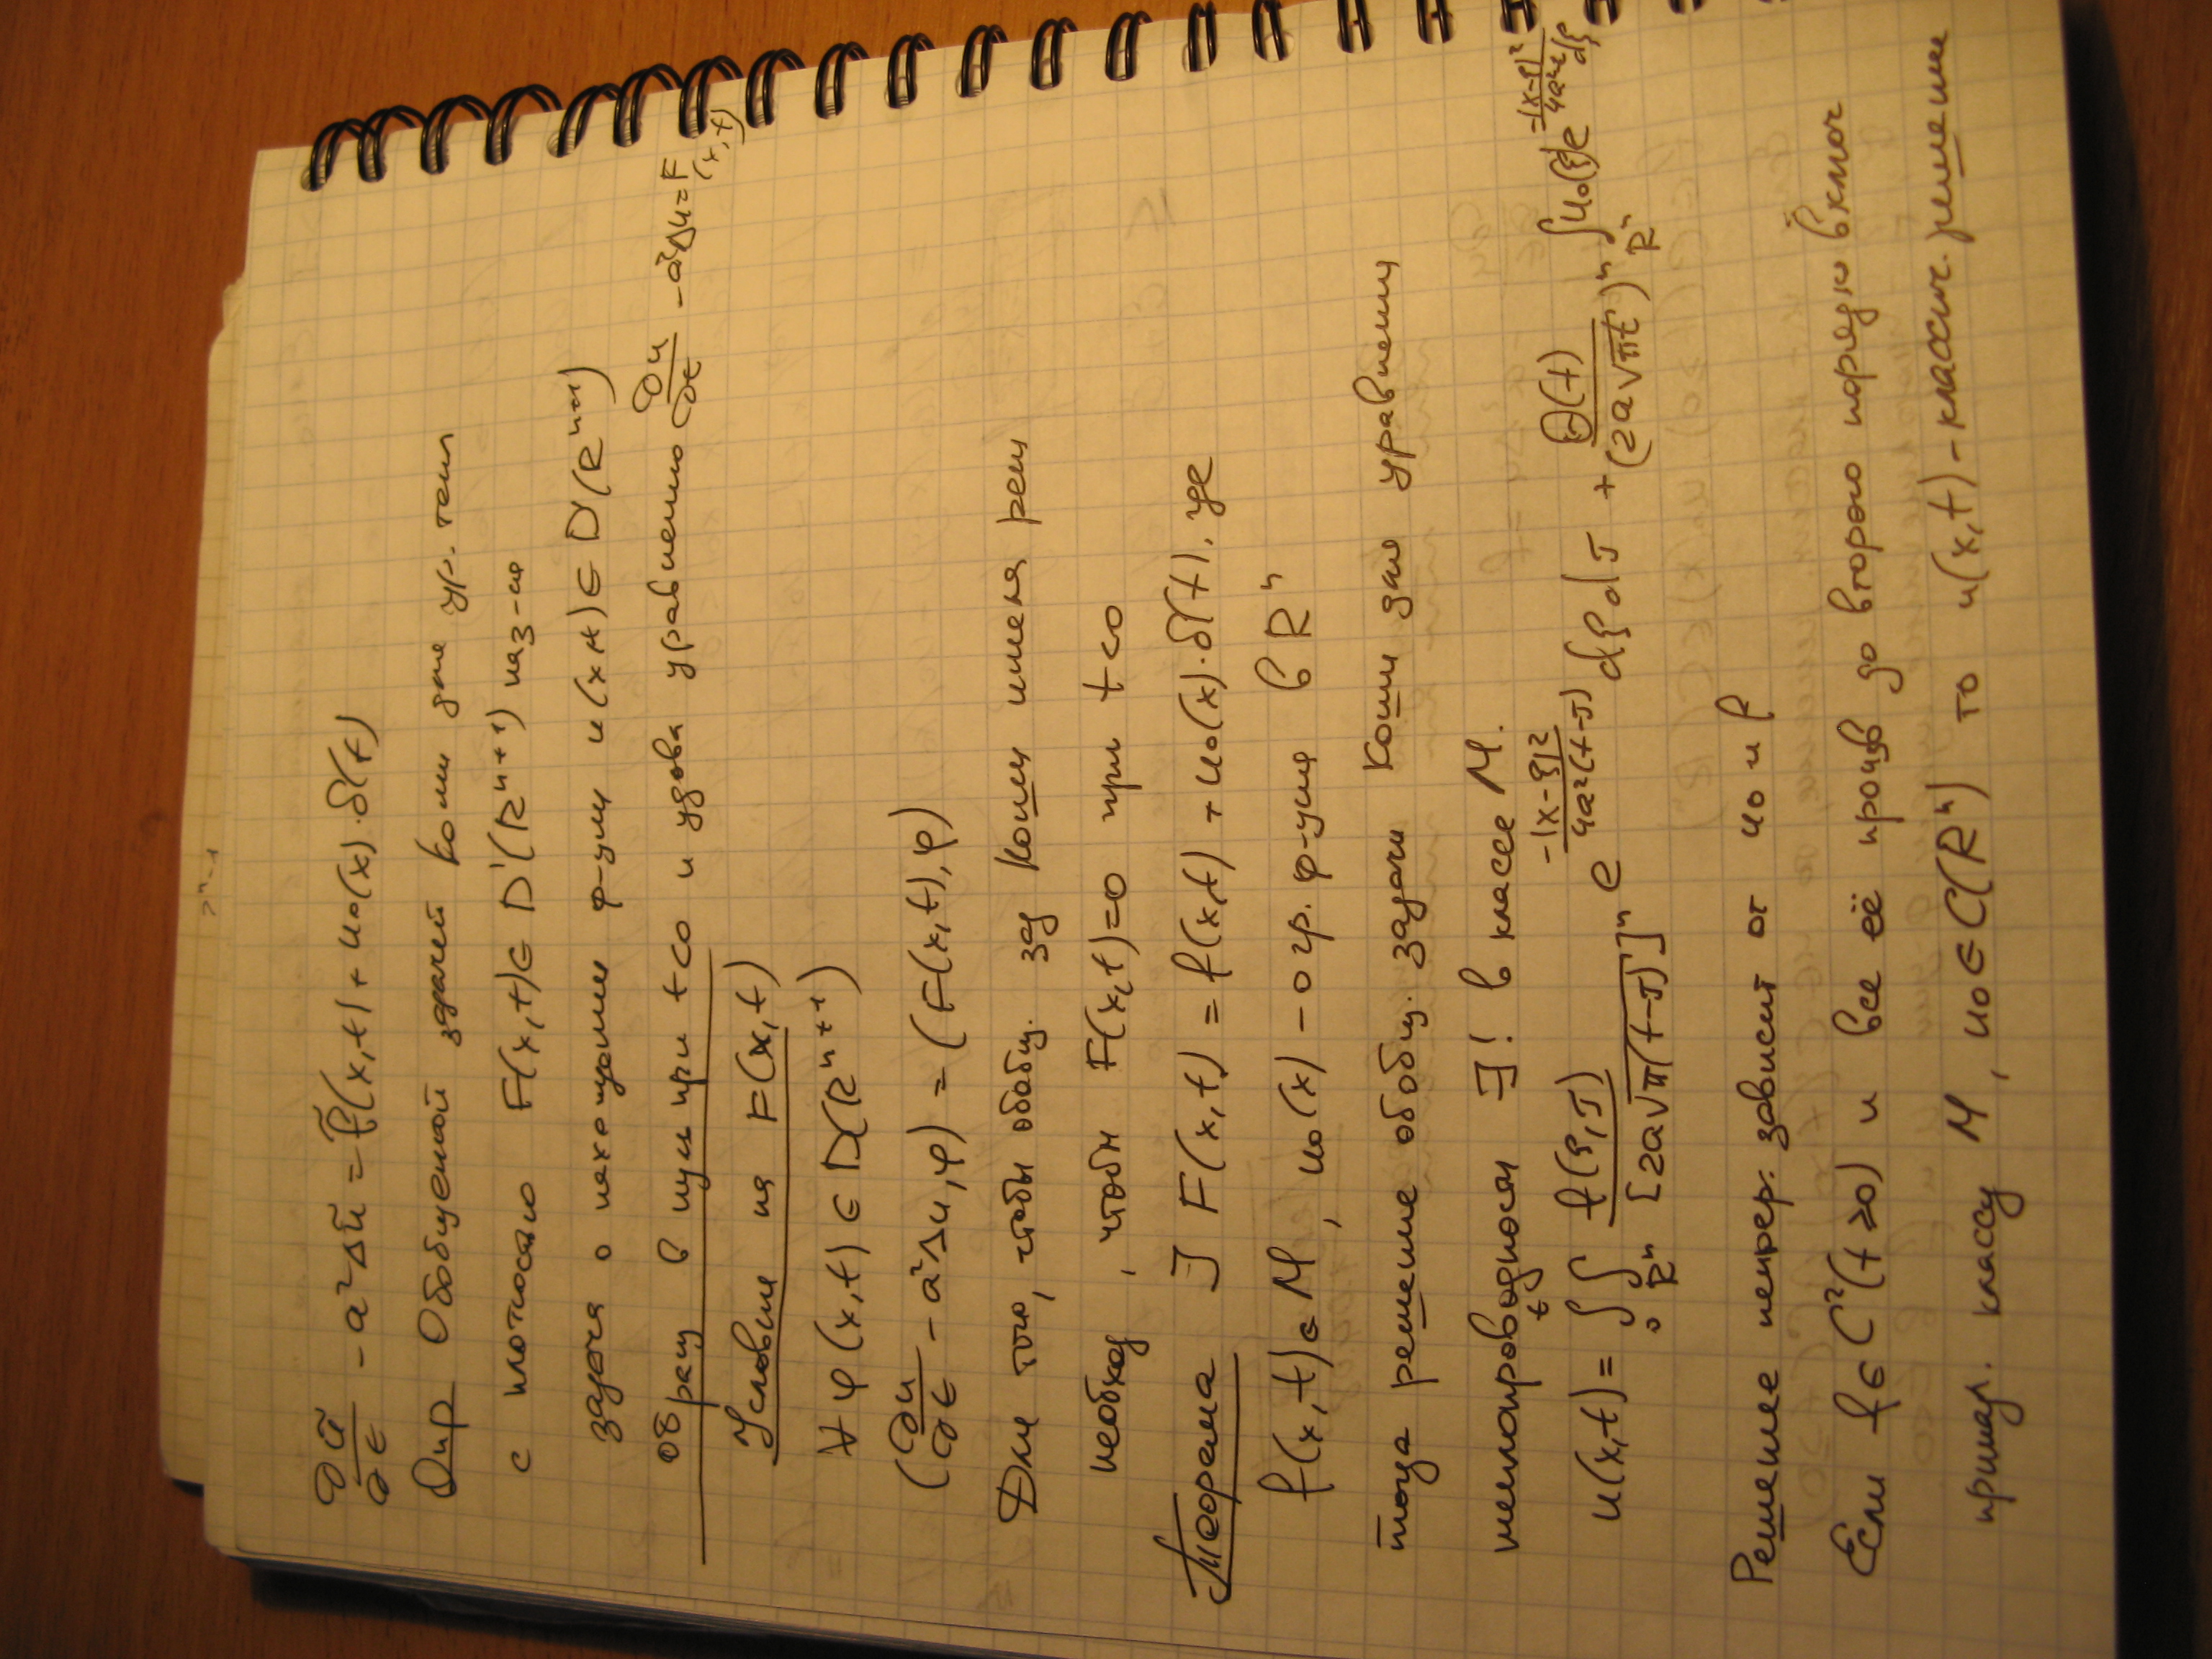 ∂ũ/∂t - a²Δũ = f̃(x,t) + u₀(x)·δ(t)
Опр Обобщенной задачей Коши для ур. теп
с плотностью F(x,t) ∈ D'(Rⁿ⁺¹) наз-ся
задача о нахождении ф-ции u(x,t) ∈ D'(Rⁿ⁺¹)
обращ в нуль при t<0 и удовл уравнению ∂u/∂t - a²Δu = F(x,t)
Условие на F(x,t)
∀ φ(x,t) ∈ D(Rⁿ⁺¹)
(∂u/∂t - a²Δu, φ) = (F(x,t), φ)
Для того, чтобы обобщ. зад Коши имела реш
необход, чтобы F(x,t)=0 при t<0
Теорема ∃ F(x,t) = f(x,t) + u₀(x)·δ(t), где
f(x,t) ∈ M, u₀(x) - огр. ф-ция в Rⁿ
тогда решение обобщ. задачи Коши для уравнения
теплопроводности ∃! в классе M.
u(x,t) = ∫₀ᵗ ∫_Rⁿ f(ξ,τ)/[2a√π(t-τ)]ⁿ e^(-|x-ξ|²/4a²(t-τ)) dξdτ + Θ(t)/(2a√πt)ⁿ ∫_Rⁿ u₀(ξ)e^(-|x-ξ|²/4a²t) dξ
Решение непрер. зависит от u₀ и f
Если f ∈ C²(t≥0) и все её произв до второго порядка включ
принад. классу M, u₀ ∈ C(Rⁿ) то u(x,t) - классич. решение